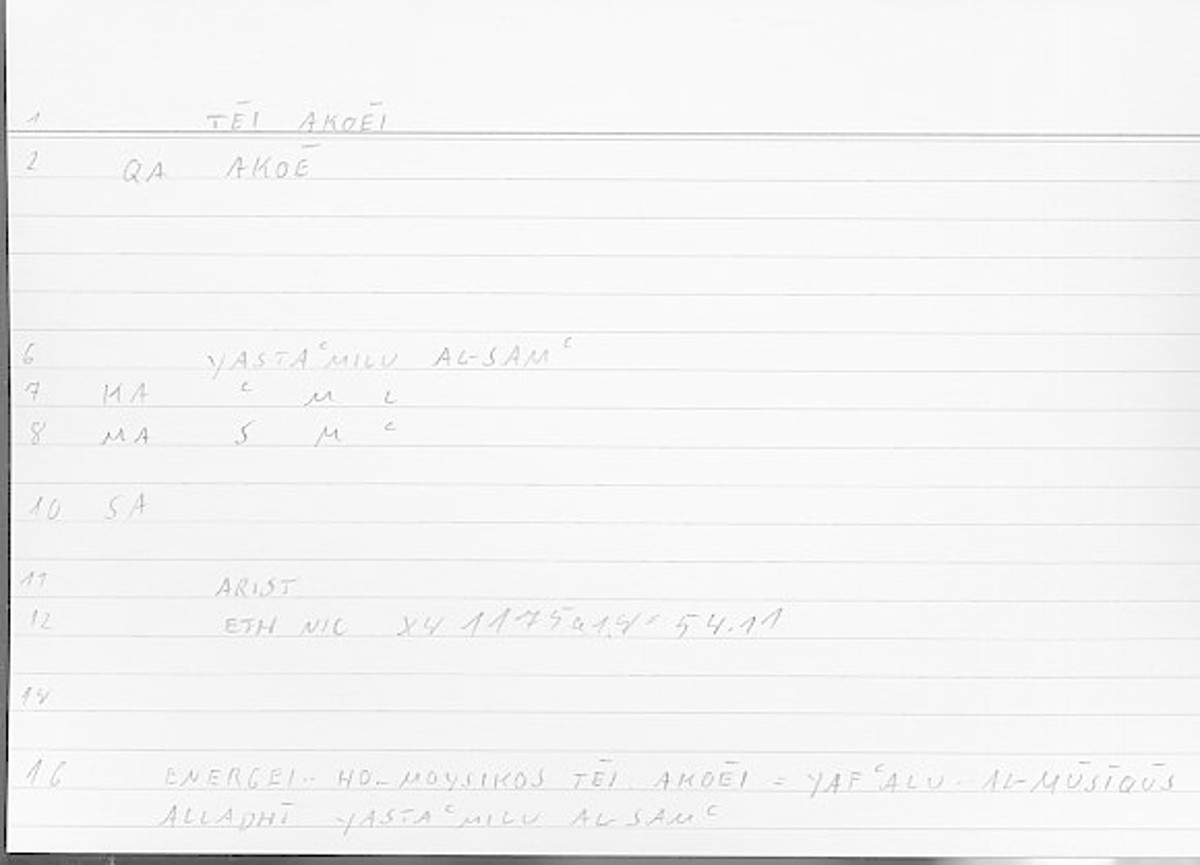 1 TĒI AKOĒI
2 QA AKOĒ
6 YASTAʿMILU AL-SAMʿ
7 MA ʿ M L
8 MA S M ʿ
10 SA
11 ARIST
12 ETH NIC X4 1175a14 = 54.11
14
16 ENERGEI.. HO_ MOYSIKOS TĒI. AKOĒI = YAFʿALU - AL-MŪSĪQŪS
ALLADHĪ YASTAʿMILU AL-SAMʿ